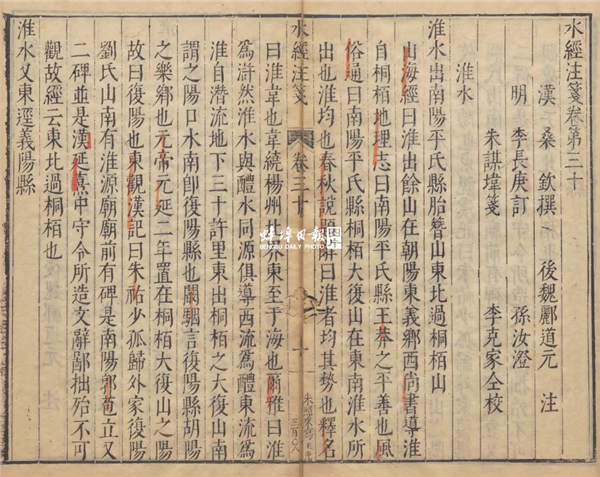 水經注箋卷第三十
漢 桑欽撰 後魏酈道元 注
明 李長庚訂 孫汝澄
朱謀㙔箋 李克家仝校
淮水
淮水出南陽平氏縣胎簪山東北過桐栢山
山海經曰淮出餘山在朝陽東義鄉西尚書導淮
自桐栢地理志曰南陽平氏縣王莽之平善也風
俗通曰南陽平氏縣桐栢大復山在東南淮水所
出也淮均也春秋說題辭曰淮者均其勢也釋名
水經注箋 卷三十 一
蚌埠日報 圖片
BENGBU DAILY PHOTO
曰淮韋也韋繞楊州北界東至于海也爾雅曰淮
為滸然淮水與醴水同源俱導西流為醴東流為
淮自潛流地下三十許里東出桐栢之大復山南
謂之陽口水南卽復陽縣也闞駰言復陽縣胡陽
之樂鄉也元帝元延二年置在桐栢大復山之陽
故曰復陽也東觀漢記曰朱祐少孤歸外家復陽
劉氏山南有淮源廟廟前有碑是南陽郭苞立又
二碑並是漢延熹中守令所造文辭鄙拙殆不可
觀故經云東北過桐栢也
淮水又東逕義陽縣